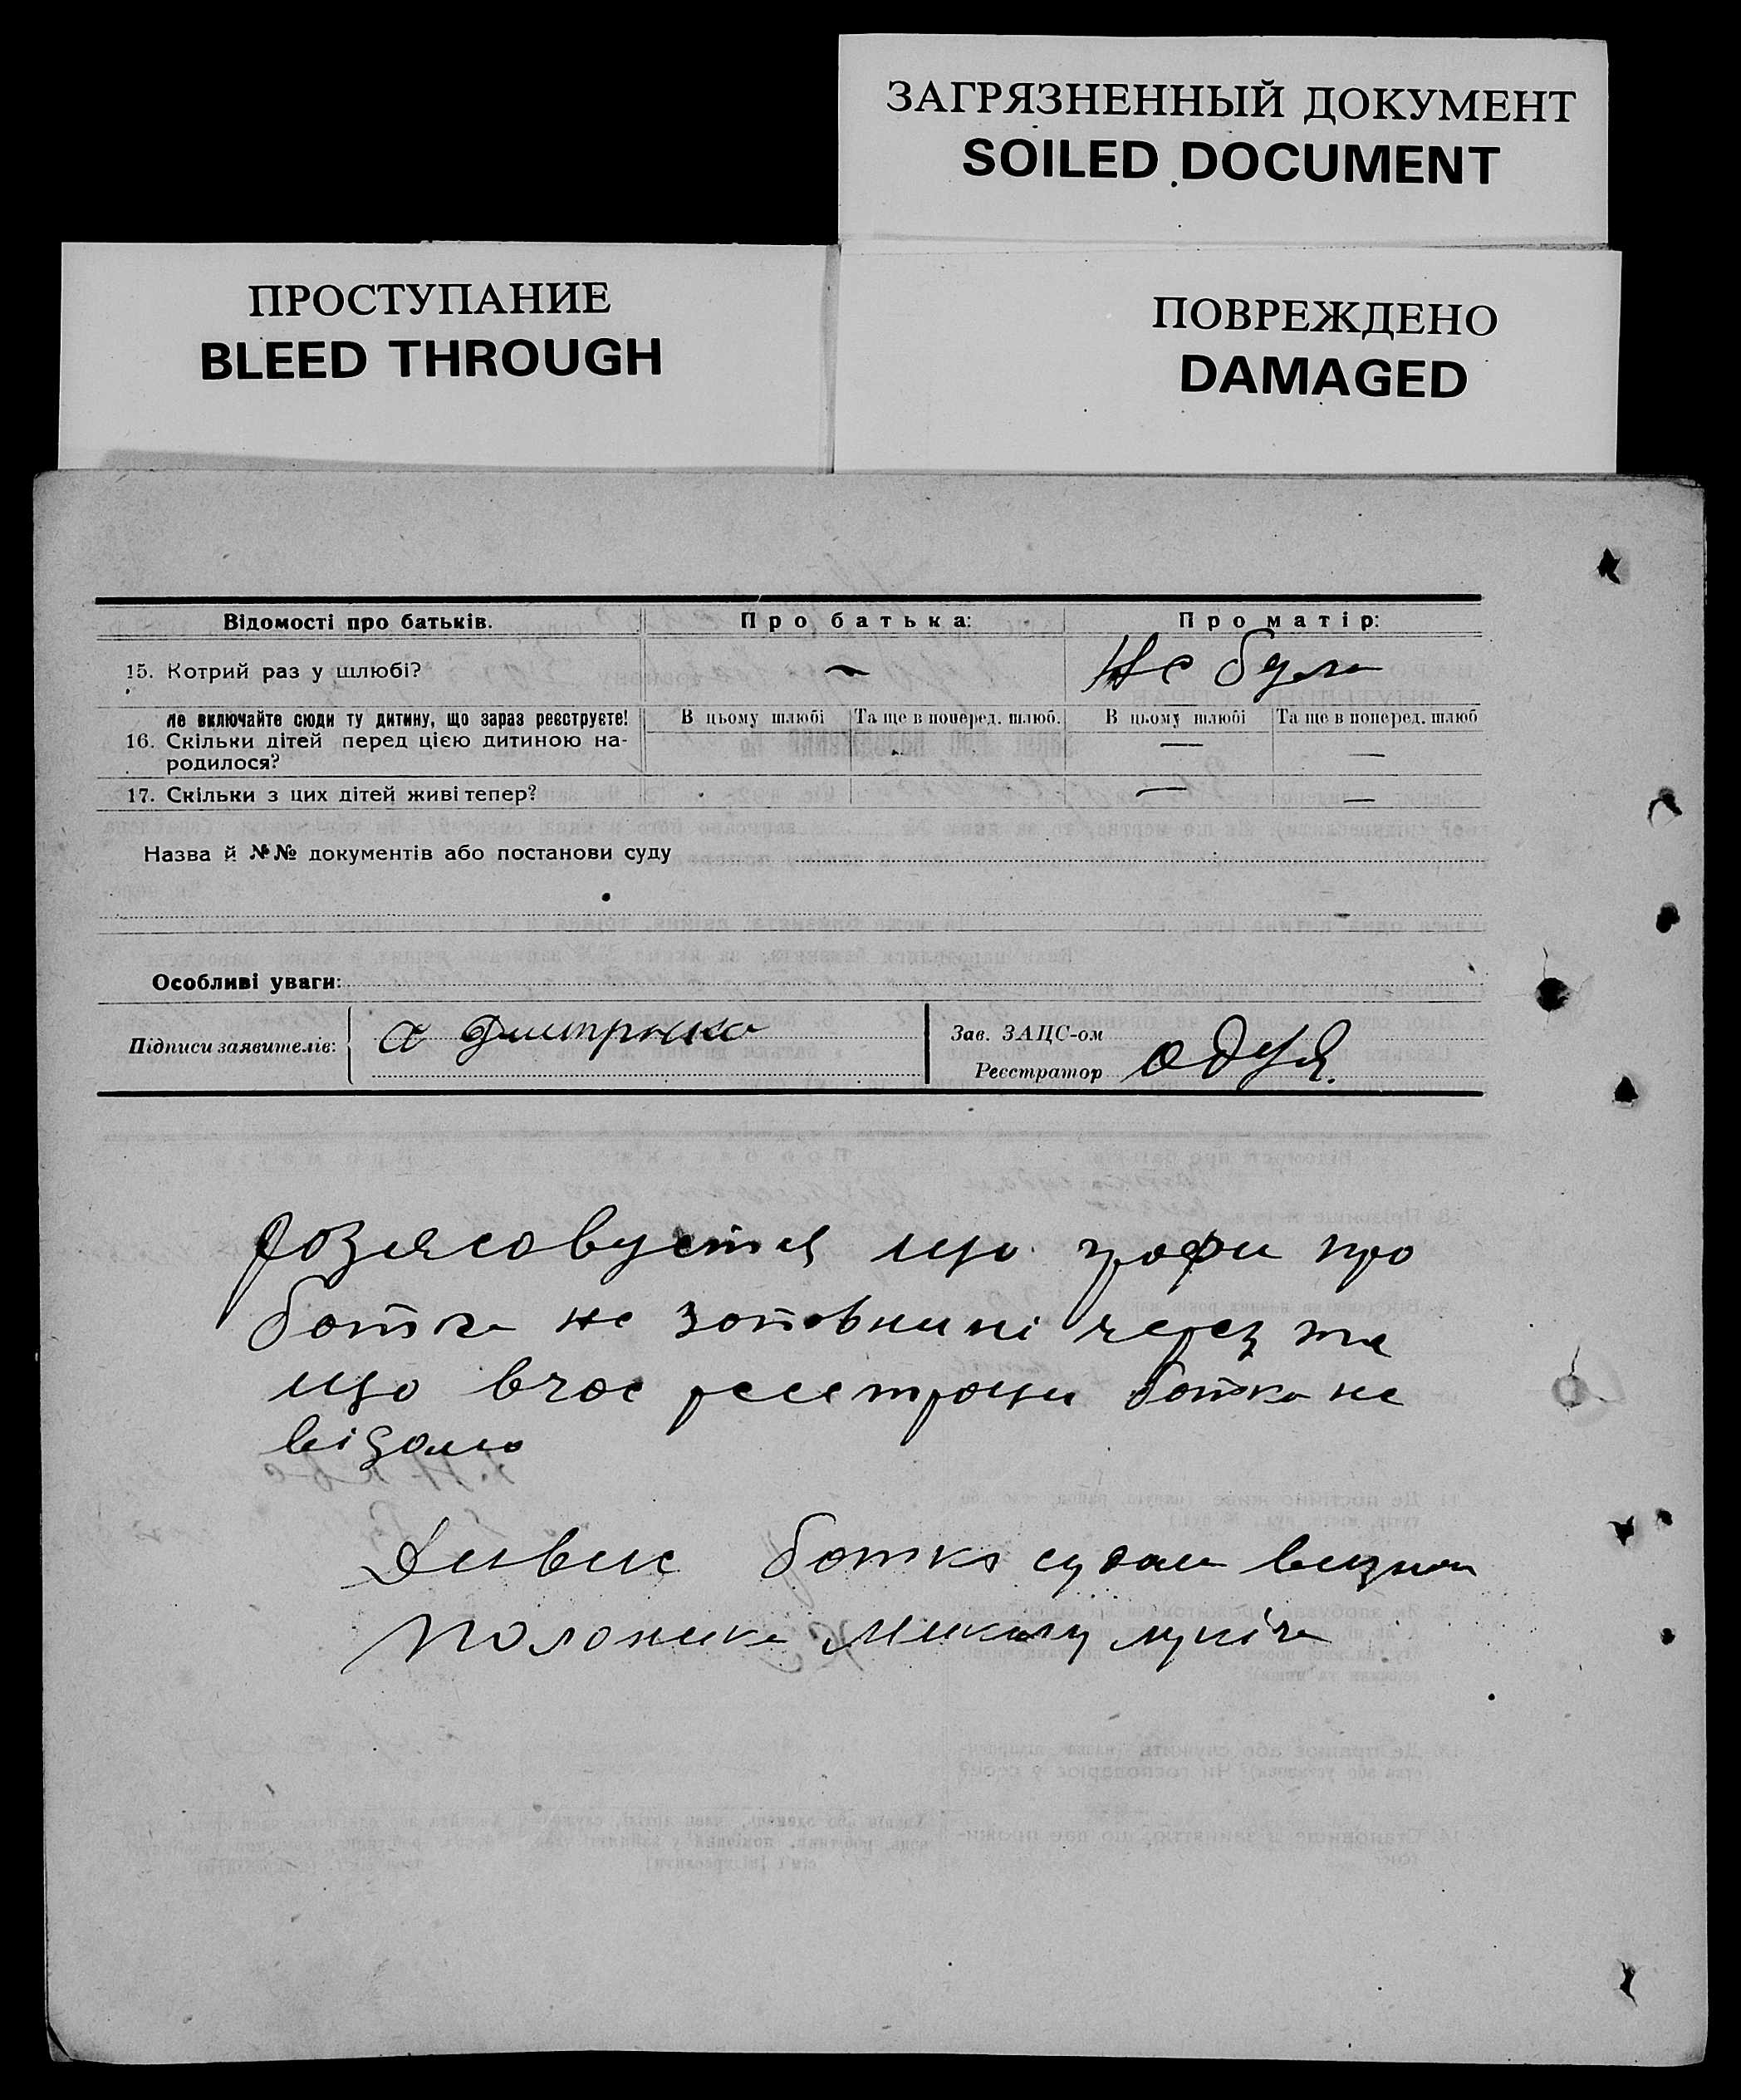 ЗАГРЯЗНЕННЫЙ ДОКУМЕНТ
SOILED DOCUMENT
ПРОСТУПАНИЕ
BLEED THROUGH
ПОВРЕЖДЕНО
DAMAGED
Відомості про батьків. Про батька: Про матір:
15. Котрий раз у шлюбі? — Не була
Не включайте сюди ту дитину, що зараз реєструєте! В цьому шлюбі Та ще в поперед. шлюб. В цьому шлюбі Та ще в поперед. шлюб
16. Скільки дітей перед цією дитиною на- — —
родилося?
17. Скільки з цих дітей живі тепер? — —
Назва й №№ документів або постанови суду
Особливі уваги:
Підписи заявителів: Зав. ЗАЦС-ом
Реєстратор
що графи про
батька не заповнині через те
що вчас реєстрації батько не
відомо
батько судом
Миколу